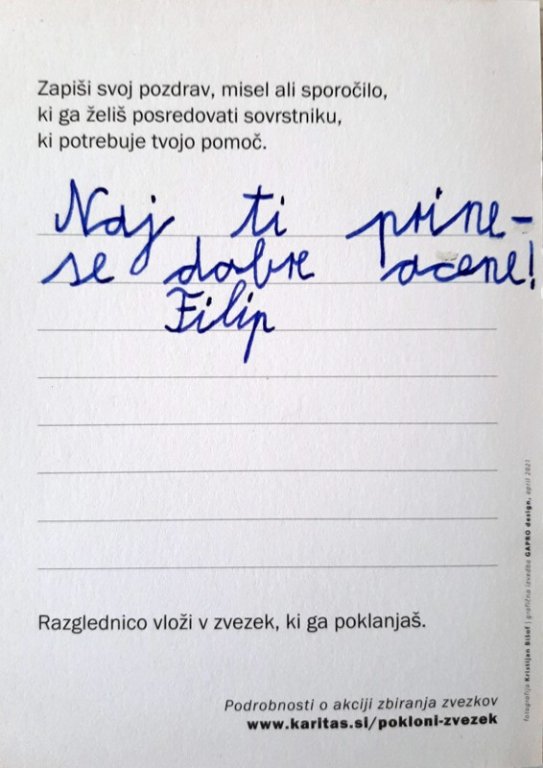 Zapiši svoj pozdrav, misel ali sporočilo,
ki ga želiš posredovati sovrstniku,
ki potrebuje tvojo pomoč.
Naj ti prine-
se dobre ocene!
Filip
Razglednico vloži v zvezek, ki ga poklanjaš.
Podrobnosti o akciji zbiranja zvezkov
www.karitas.si/pokloni-zvezek
fotografija Kristijan Bišof | grafična izvedba GAPRO design, april 2021